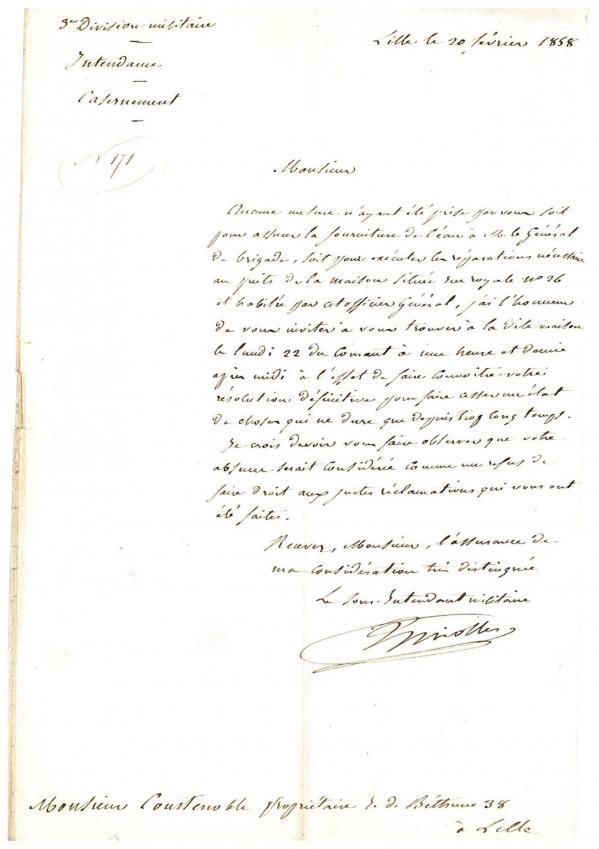 3e Division militaire
Lille le 20 février 1858
Intendance
Casernement
N 171
Monsieur
Aucune mesure n'ayant été prise par vous soit
pour assurer la fourniture de l'eau à M. le Général
de brigade, soit pour exécuter les réparations nécessaires
au puits de la maison située rue royale no 26
et habitée par cet officier Général, j'ai l'honneur
de vous inviter à vous trouver à la dite maison
le lundi 22 du courant à une heure et demie
après midi à l'effet de faire connaître votre
résolution définitive pour faire cesser un état
de choses qui ne dure que depuis trop long temps.
Je crois devoir vous faire observer que votre
absence serait considérée comme un refus de
faire droit aux justes réclamations qui vous ont
été faites.
Recevez, Monsieur, l'assurance de
ma considération très distinguée
Le Sous-Intendant militaire
Monsieur Coustenoble propriétaire r. de Béthune 38
à Lille